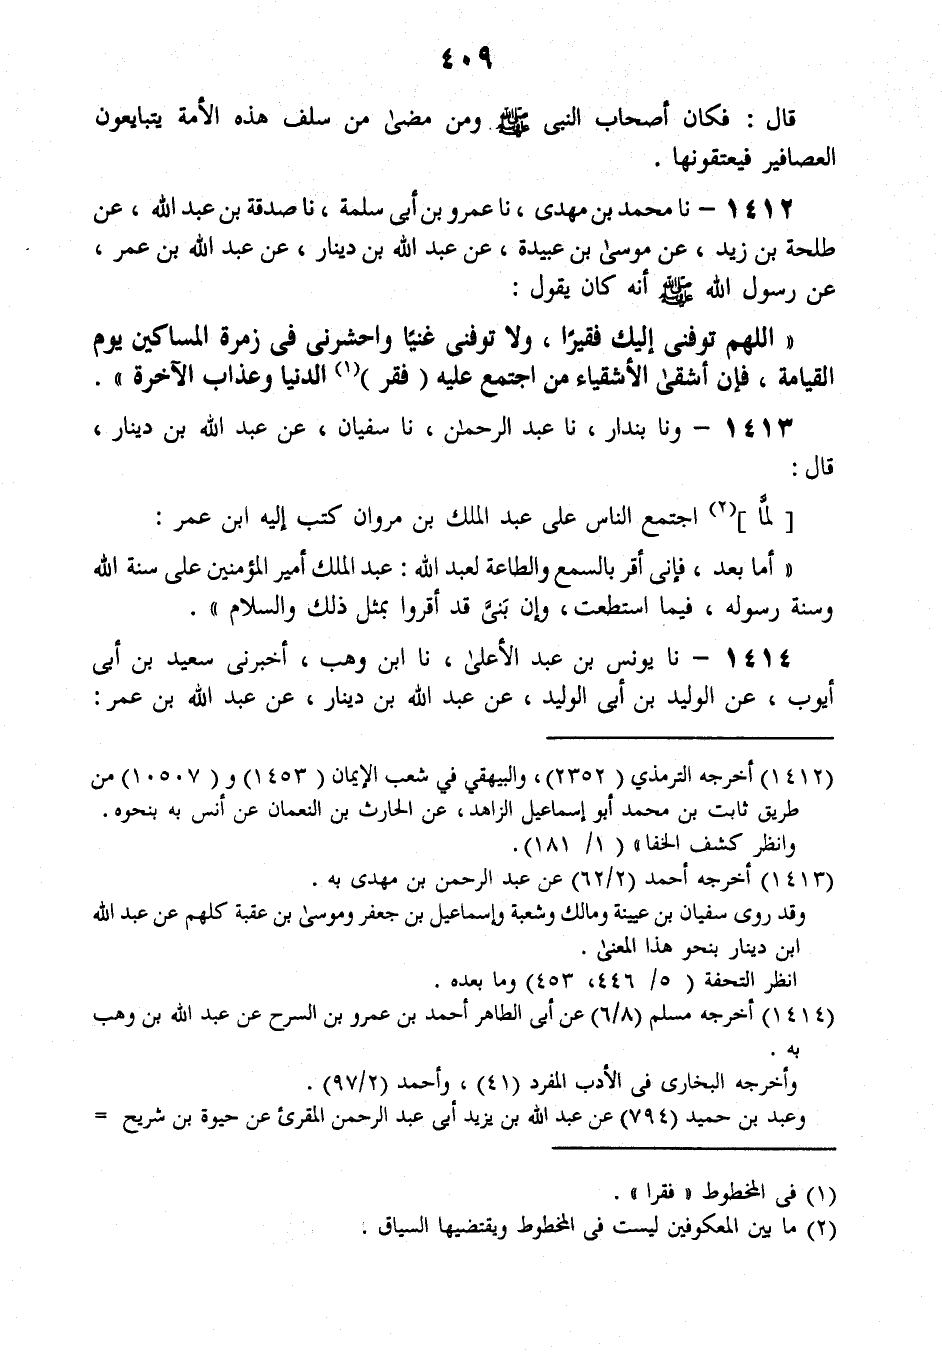 ٤٠٩
قال : فكان أصحاب النبى ﷺ ومن مضىٰ من سلف هذه الأمة يتبايعون
العصافير فيعتقونها .
١٤١٢ – نا محمد بن مهدى ، نا عمرو بن أبى سلمة ، نا صدقة بن عبد الله ، عن
طلحة بن زيد ، عن موسىٰ بن عبيدة ، عن عبد الله بن دينار ، عن عبد الله بن عمر ،
عن رسول الله ﷺ أنه كان يقول :
« اللهم توفنى إليك فقيرًا ، ولا توفنى غنيًا واحشرنى فى زمرة المساكين يوم
القيامة ، فإن أشقىٰ الأشقياء من اجتمع عليه ( فقر )(١) الدنيا وعذاب الآخرة » .
١٤١٣ – ونا بندار ، نا عبد الرحمٰن ، نا سفيان ، عن عبد الله بن دينار ،
قال :
[ لمَّا ](٢) اجتمع الناس على عبد الملك بن مروان كتب إليه ابن عمر :
« أما بعد ، فإنى أقر بالسمع والطاعة لعبد الله : عبد الملك أمير المؤمنين على سنة الله
وسنة رسوله ، فيما استطعت ، وإن بَنىَّ قد أقروا بمثل ذلك والسلام » .
١٤١٤ – نا يونس بن عبد الأعلىٰ ، نا ابن وهب ، أخبرنى سعيد بن أبى
أيوب ، عن الوليد بن أبى الوليد ، عن عبد الله بن دينار ، عن عبد الله بن عمر :
(١٤١٢) أخرجه الترمذي ( ٢٣٥٢)، والبيهقي في شعب الإيمان ( ١٤٥٣) و ( ١٠٥٠٧) من
طريق ثابت بن محمد أبو إسماعيل الزاهد ، عن الحارث بن النعمان عن أنس به بنحوه .
وانظر كشف الخفاء ( ١/ ١٨١).
(١٤١٣) أخرجه أحمد (٦٢/٢) عن عبد الرحمن بن مهدى به .
وقد روى سفيان بن عيينة ومالك وشعبة وإسماعيل بن جعفر وموسىٰ بن عقبة كلهم عن عبد الله
ابن دينار بنحو هذا المعنىٰ .
انظر التحفة ( ٥/ ٤٤٦، ٤٥٣) وما بعده .
(١٤١٤) أخرجه مسلم (٦/٨) عن أبى الطاهر أحمد بن عمرو بن السرح عن عبد الله بن وهب
به .
وأخرجه البخارى فى الأدب المفرد (٤١) ، وأحمد (٩٧/٢) .
وعبد بن حميد (٧٩٤) عن عبد الله بن يزيد أبى عبد الرحمن المقرئ عن حيوة بن شريح =
(١) فى المخطوط « فقرا » .
(٢) ما بين المعكوفين ليست فى المخطوط ويقتضيها السياق .